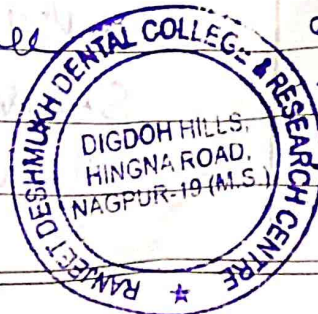 RANJEET DESHMUKH DENTAL COLLEGE & RESEARCH CENTRE
DIGDOH HILLS,
HINGNA ROAD,
NAGPUR-19 (M.S.)